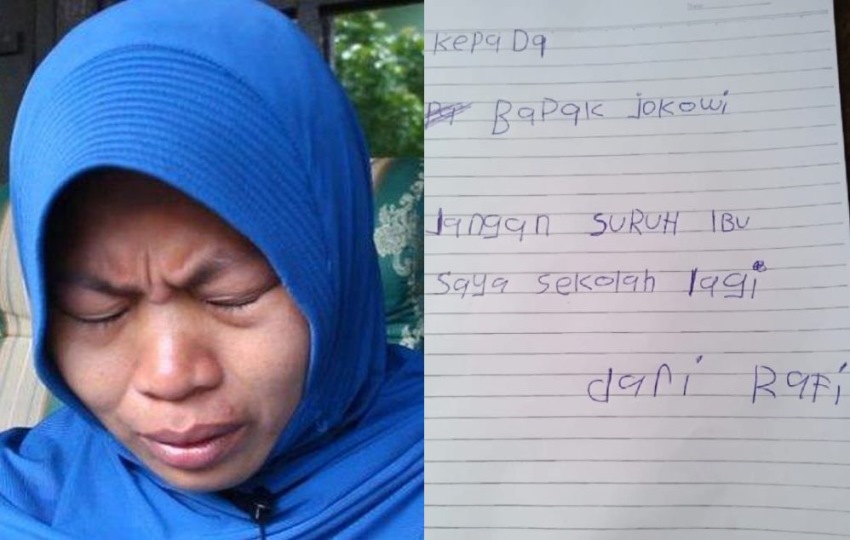 kepaDa
BaPak jokowi
Jangan SURUH IBU
saya sekolah lagi
dari Rafi